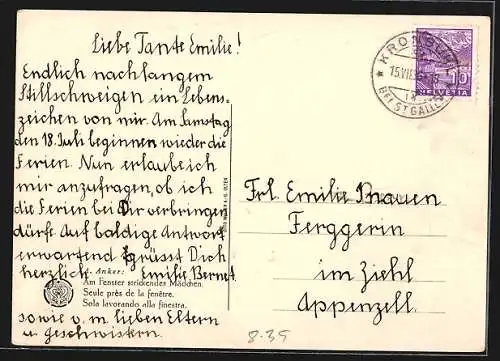 Liebe Tante Emilie!
Endlich nach langem
Stillschweigen ein Lebens-
zeichen von mir. Am Samstag
den 18. Juli beginnen wieder die
Ferien. Nun erlaube ich
mir anzufragen, ob ich
die Ferien bei Dir verbringen
dürft. Auf baldige Antwort
erwartend grüsst Dich
herzlich Emilie Bernet
Anker:
Am Fenster strickendes Mädchen.
Seule près de la fenêtre.
Sola lavorando alla finestra.
sowie v. m. lieben Eltern
u. Geschwistern.
8.35
KRONBÜHL
15.VII
BEI ST GALLEN
10
HELVETIA
Frl. Emilie Brauen
Ferggerin
im Ziehl
Appenzell.